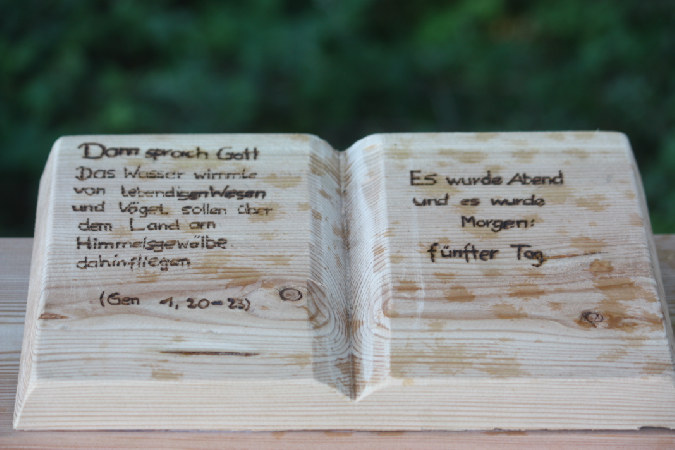 Dann sprach Gott
Das Wasser wimmle
von lebendigen Wesen
und Vögel sollen über
dem Land am
Himmelsgewölbe
dahinfliegen
(Gen 1, 20-23)
Es wurde Abend
und es wurde
Morgen:
fünfter Tag